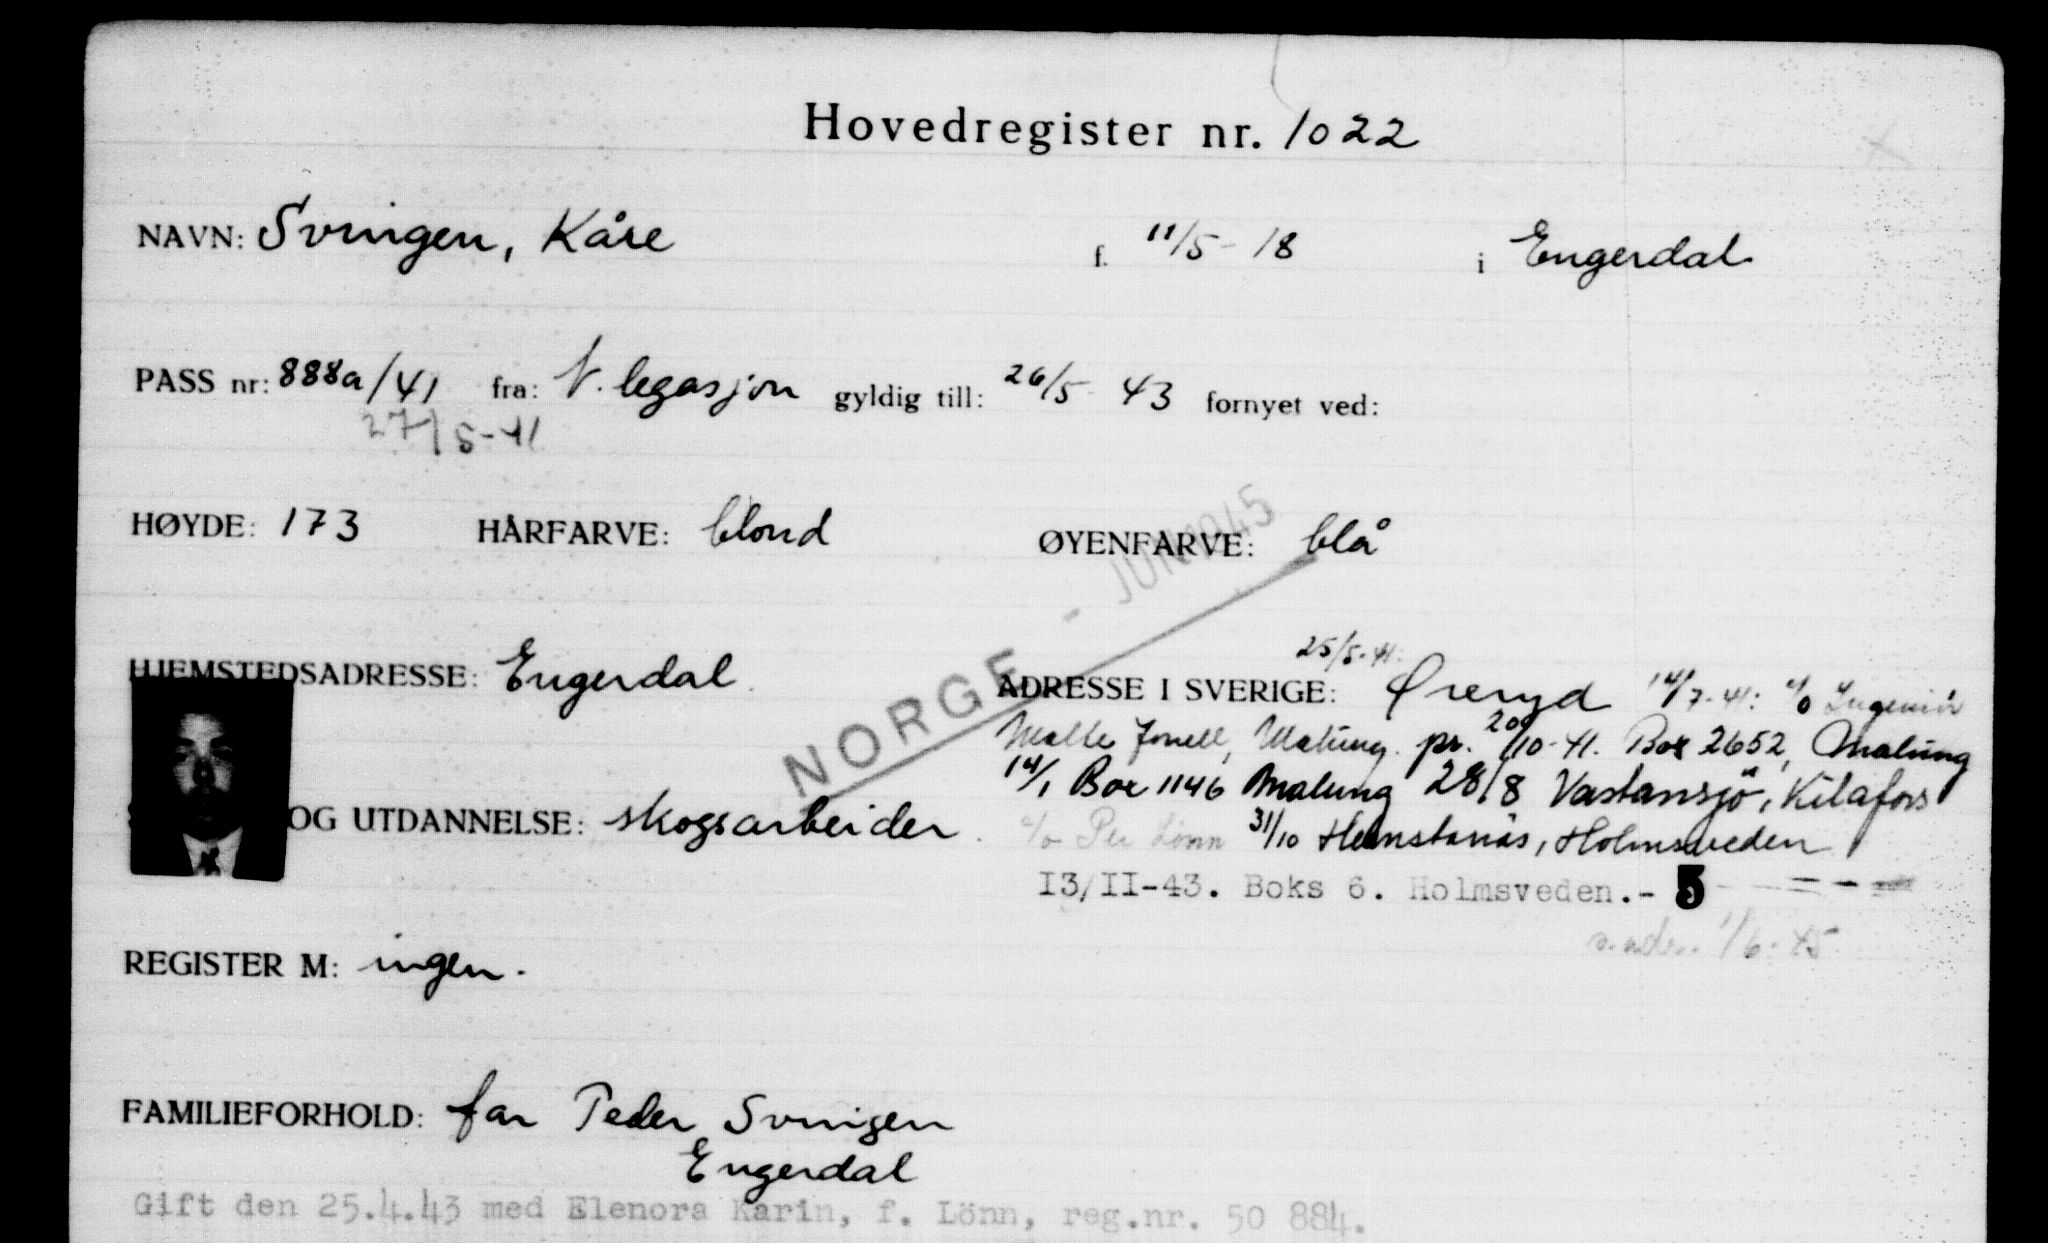 Hovedregister nr. 1022
NAVN: Svingen, Kåre f. 11/5-18 i Engerdal
PASS nr: 888a/41 fra: N. legasjon gyldig till: 26/5-43 fornyet ved:
27/5-41
HØYDE: 173 HÅRFARVE: blond ØYENFARVE: blå
NORGE - JUNI 1945
25/5-41:
HJEMSTEDSADRESSE: Engerdal. ADRESSE I SVERIGE: Øreryd 14/7-41: c/o Ingeniör
Malte Jonell, Malung. pr. 20/10-41. Box 2652, Malung
14/1 Box 1146 Malung 28/8 Vastansjö, Kilafors
OG UTDANNELSE: skogsarbeider. c/o Per Lönn 31/10 Holmsveden
13/11-43. Boks 6. Holmsveden.- 5
1/6-45
REGISTER M: ingen.
FAMILIEFORHOLD: far Peder Svingen
Engerdal
Gift den 25.4.43 med Elenora Karin, f. Lönn, reg.nr. 50 884.